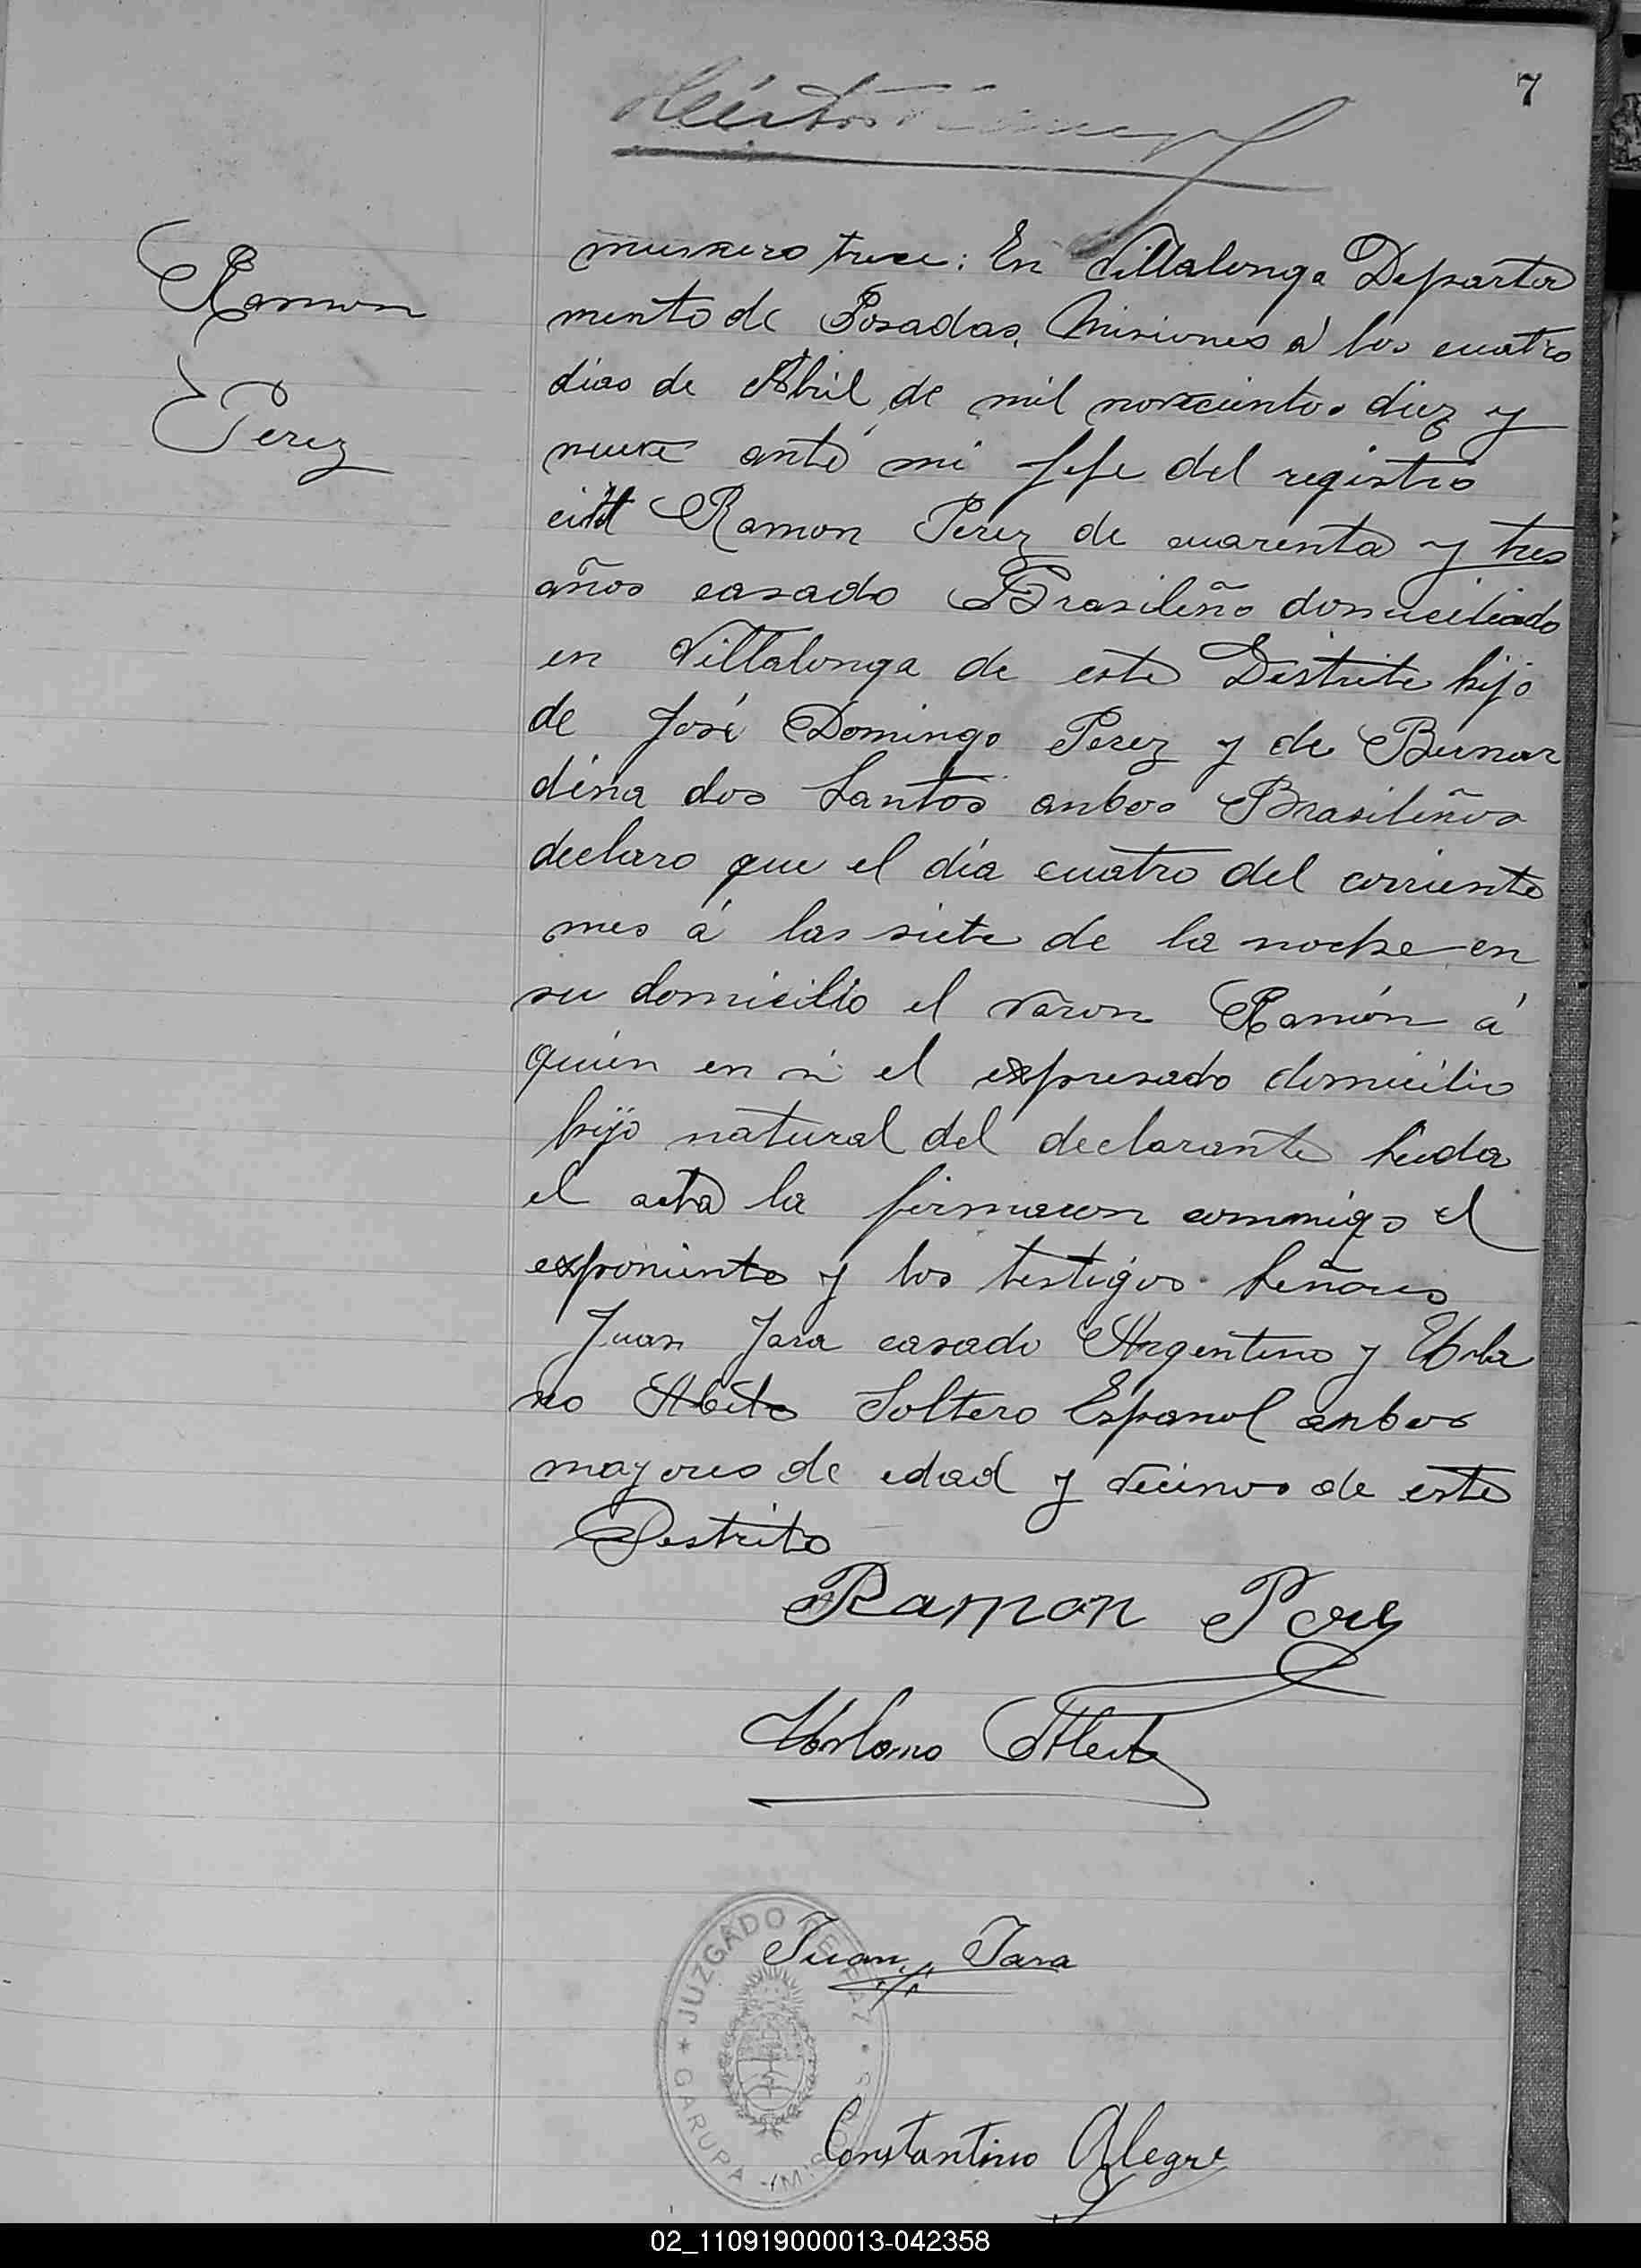 7
Héctor
Ramon
Perez
numero trece: En Villalonga Departa
mento de Posadas, Misiones á los cuatro
dias de Abril de mil novecientos diez y
nueve ante mi Jefe del registro
civil Ramon Perez de cuarenta y tres
años casado Brasileño domiciliado
en Villalonga de este Distrito hijo
de José Domingo Perez y de Bernar
dina dos Santos anbos Brasileños
declaro que el día cuatro del corriente
mes á las siete de la noche en
su domicilio el varon Ramón á
quien en vi el expresado domicilio
hijo natural del declarante leida
el acta la firmaron conmigo el
exponente y los testigos señores
Juan Jara casado Argentino y Urba
no Abeto Soltero Espanol anbos
mayores de edad y vecinos de este
Destrito
Ramon Perez
Urbano
Juan Jara
JUZGADO DE PAZ
* GARUPA - MISIONES *
Constantino Alegre
02_110919000013-042358